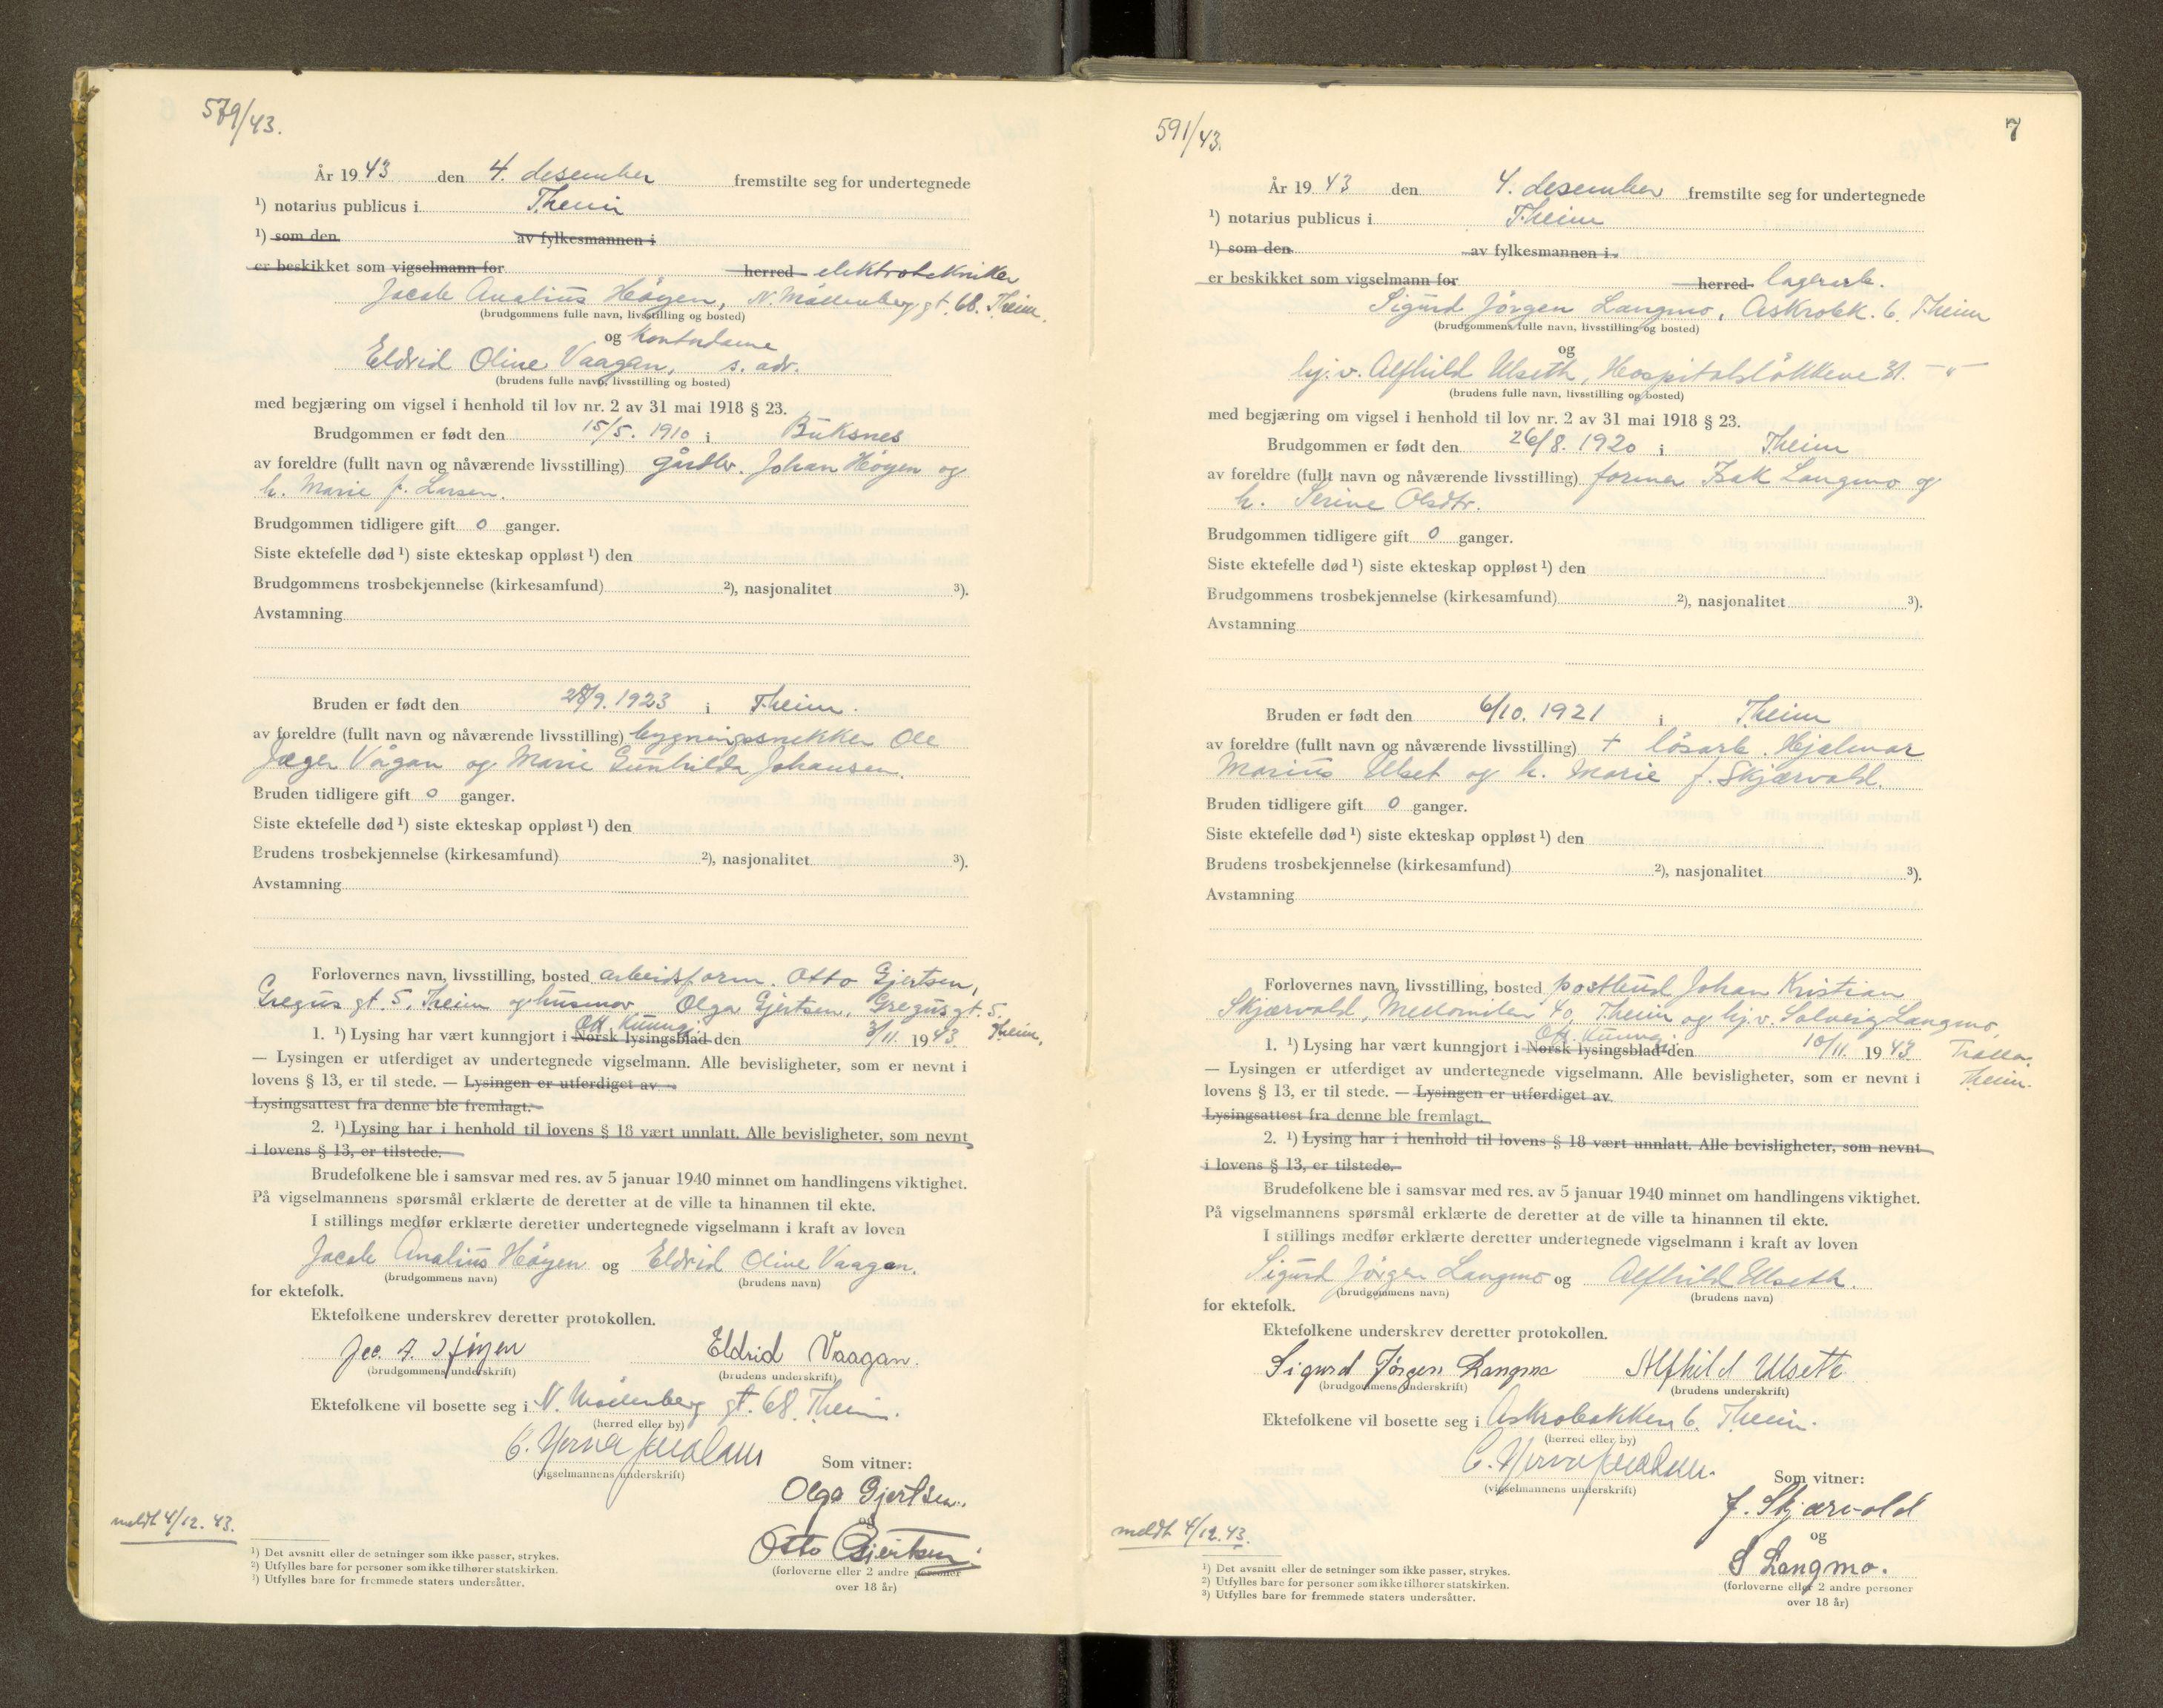 579/43.
År 1943 den 4. desember fremstilte seg for undertegnede
¹) notarius publicus i Theim
¹) som den av fylkesmannen i
er beskikket som vigselmann for herred elektrotekniker
Jacob Analius Höyen, N. Möllenberg gt. 68. Theim.
(brudgommens fulle navn, livsstilling og bosted)
og kontordame
Eldrid Oline Vaagan, s. adr.
(brudens fulle navn, livsstilling og bosted)
med begjæring om vigsel i henhold til lov nr. 2 av 31 mai 1918 § 23.
Brudgommen er født den 15/5. 1910 i Buksnes
av foreldre (fullt navn og nåværende livsstilling) gårdbr. Johan Höyen og
h. Marie f. Larsen.
Brudgommen tidligere gift 0 ganger.
Siste ektefelle død ¹) siste ekteskap oppløst ¹) den
Brudgommens trosbekjennelse (kirkesamfund) ²), nasjonalitet ³).
Avstamning
Bruden er født den /9. 1923 i Theim.
av foreldre (fullt navn og nåværende livsstilling) bygningssnekker Ole
Jæger Vågan og Marie Gunhilda Johansen.
Bruden tidligere gift 0 ganger.
Siste ektefelle død ¹) siste ekteskap oppløst ¹) den
Brudens trosbekjennelse (kirkesamfund) ²), nasjonalitet ³).
Avstamning
Forlovernes navn, livsstilling, bosted arbeidsform. Otto Gjertsen,
Gregus gt. 5. Theim og husmor Olga Gjertsen, Gregus gt. 5.
Theim.
Off. Kunng.
1. ¹) Lysing har vært kunngjort i Norsk lysingsblad den 3/11. 1943.
— Lysingen er utferdiget av undertegnede vigselmann. Alle bevisligheter, som er nevnt i
lovens § 13, er til stede. — Lysingen er utferdiget av
Lysingsattest fra denne ble fremlagt.
2. ¹) Lysing har i henhold til lovens § 18 vært unnlatt. Alle bevisligheter, som nevnt
i lovens § 13, er tilstede.
Brudefolkene ble i samsvar med res. av 5 januar 1940 minnet om handlingens viktighet.
På vigselmannens spørsmål erklærte de deretter at de ville ta hinannen til ekte.
I stillings medfør erklærte deretter undertegnede vigselmann i kraft av loven
Jacob Analius Höyen og Eldrid Oline Vaagan.
(brudgommens navn) (brudens navn)
for ektefolk.
Ektefolkene underskrev deretter protokollen.
Jac. A. Höyen Eldrid Vaagan.
(brudgommens underskrift) (brudens underskrift)
Ektefolkene vil bosette seg i N. Möllenberg gt. 68. Theim.
(herred eller by)
(vigselmannens underskrift)
Som vitner:
Olga Gjertsen.
og
Otto Gjertsen.
(forloverne eller 2 andre personer
over 18 år)
meldt 4/12. 43.
¹) Det avsnitt eller de setninger som ikke passer, strykes.
²) Utfylles bare for personer som ikke tilhører statskirken.
³) Utfylles bare for fremmede staters undersåtter.
591/43.
7
År 1943 den 4. desember fremstilte seg for undertegnede
¹) notarius publicus i Theim
¹) som den av fylkesmannen i
er beskikket som vigselmann for herred lagerarb.
Sigurd Jörgen Langmo, Askrobk. 6. Theim
(brudgommens fulle navn, livsstilling og bosted)
og
hj.v. Alfhild Ulseth, Hospitalslökkene 31. — " —
(brudens fulle navn, livsstilling og bosted)
med begjæring om vigsel i henhold til lov nr. 2 av 31 mai 1918 § 23.
Brudgommen er født den 26/8. 1920 i Theim
av foreldre (fullt navn og nåværende livsstilling) former Isak Langmo og
h. Serine Olsdtr.
Brudgommen tidligere gift 0 ganger.
Siste ektefelle død ¹) siste ekteskap oppløst ¹) den
Brudgommens trosbekjennelse (kirkesamfund) ²), nasjonalitet ³).
Avstamning
Bruden er født den 6/10. 1921 i Theim
av foreldre (fullt navn og nåværende livsstilling) + lösarb. Hjalmar
Marius Ulset og h. Marie f. Skjærvold.
Bruden tidligere gift 0 ganger.
Siste ektefelle død ¹) siste ekteskap oppløst ¹) den
Brudens trosbekjennelse (kirkesamfund) ²), nasjonalitet ³).
Avstamning
Forlovernes navn, livsstilling, bosted postbud Johan Kristian
Skjærvold, Mellomilen 40, Theim og hj.v. Solveig Langmo,
Theim.
Off. Kunng.
1. ¹) Lysing har vært kunngjort i Norsk lysingsblad den 10/11. 1943
— Lysingen er utferdiget av undertegnede vigselmann. Alle bevisligheter, som er nevnt i
lovens § 13, er til stede. — Lysingen er utferdiget av
Lysingsattest fra denne ble fremlagt.
2. ¹) Lysing har i henhold til lovens § 18 vært unnlatt. Alle bevisligheter, som nevnt
i lovens § 13, er tilstede.
Brudefolkene ble i samsvar med res. av 5 januar 1940 minnet om handlingens viktighet.
På vigselmannens spørsmål erklærte de deretter at de ville ta hinannen til ekte.
I stillings medfør erklærte deretter undertegnede vigselmann i kraft av loven
Sigurd Jörgen Langmo og Alfhild Ulseth.
(brudgommens navn) (brudens navn)
for ektefolk.
Ektefolkene underskrev deretter protokollen.
Sigurd Jörgen Langmo Alfhild Ulseth
(brudgommens underskrift) (brudens underskrift)
Ektefolkene vil bosette seg i Askrobakken 6. Theim.
(herred eller by)
(vigselmannens underskrift)
Som vitner:
J. Skjærvold
og
S Langmo.
(forloverne eller 2 andre personer
over 18 år)
meldt 4/12. 43.
¹) Det avsnitt eller de setninger som ikke passer, strykes.
²) Utfylles bare for personer som ikke tilhører statskirken.
³) Utfylles bare for fremmede staters undersåtter.